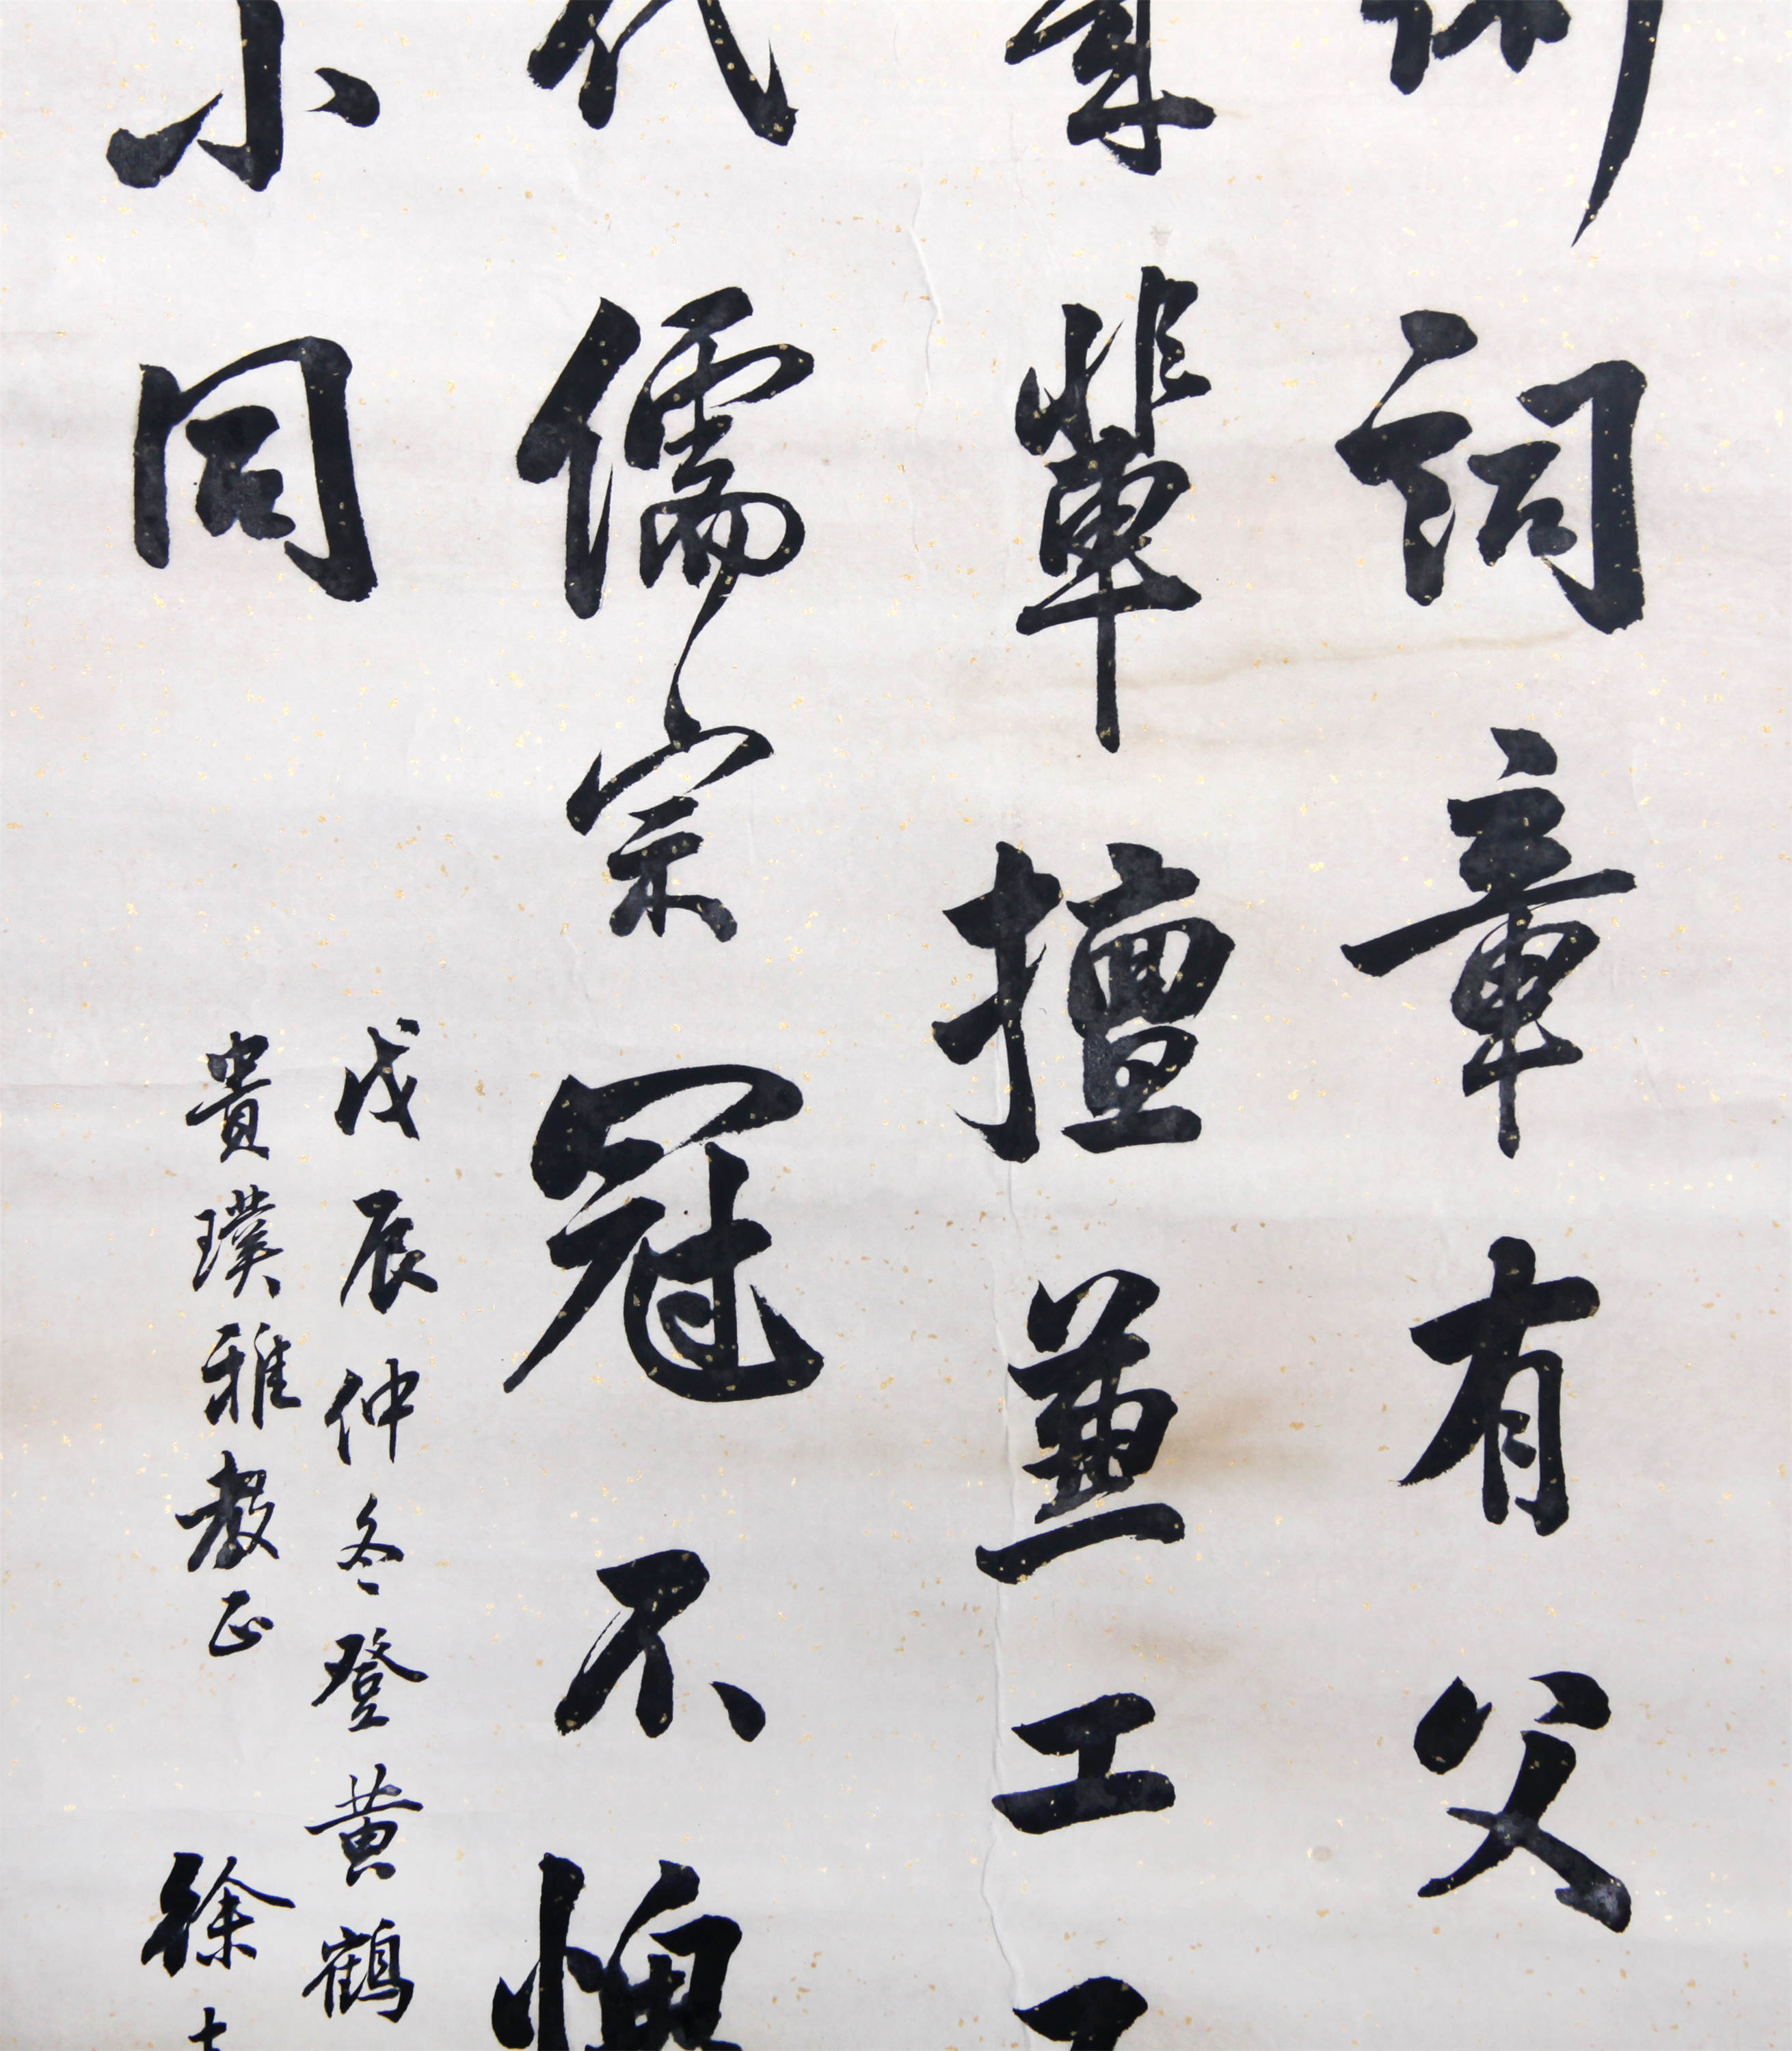 詞章有父
輩擅兼工
代儒宗冠不愧
小同
戊辰仲冬登黄鶴
貴璞雅教正
徐